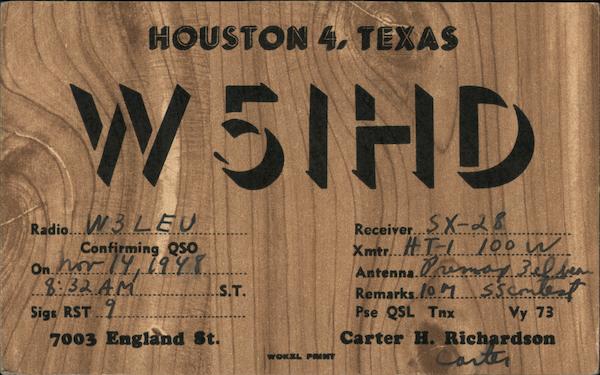 HOUSTON 4, TEXAS
W5IHD
Radio W3LEU
Confirming QSO
On Nov 14, 1948
8:32 AM S.T.
Sigs RST 9
7003 England St.
Receiver SX-28
Xmtr HT-1 100 W
Antenna Premax 3 el beam
Remarks 10M SS contest
Pse QSL Tnx Vy 73
Carter H. Richardson
Carter
WOKZL PRINT